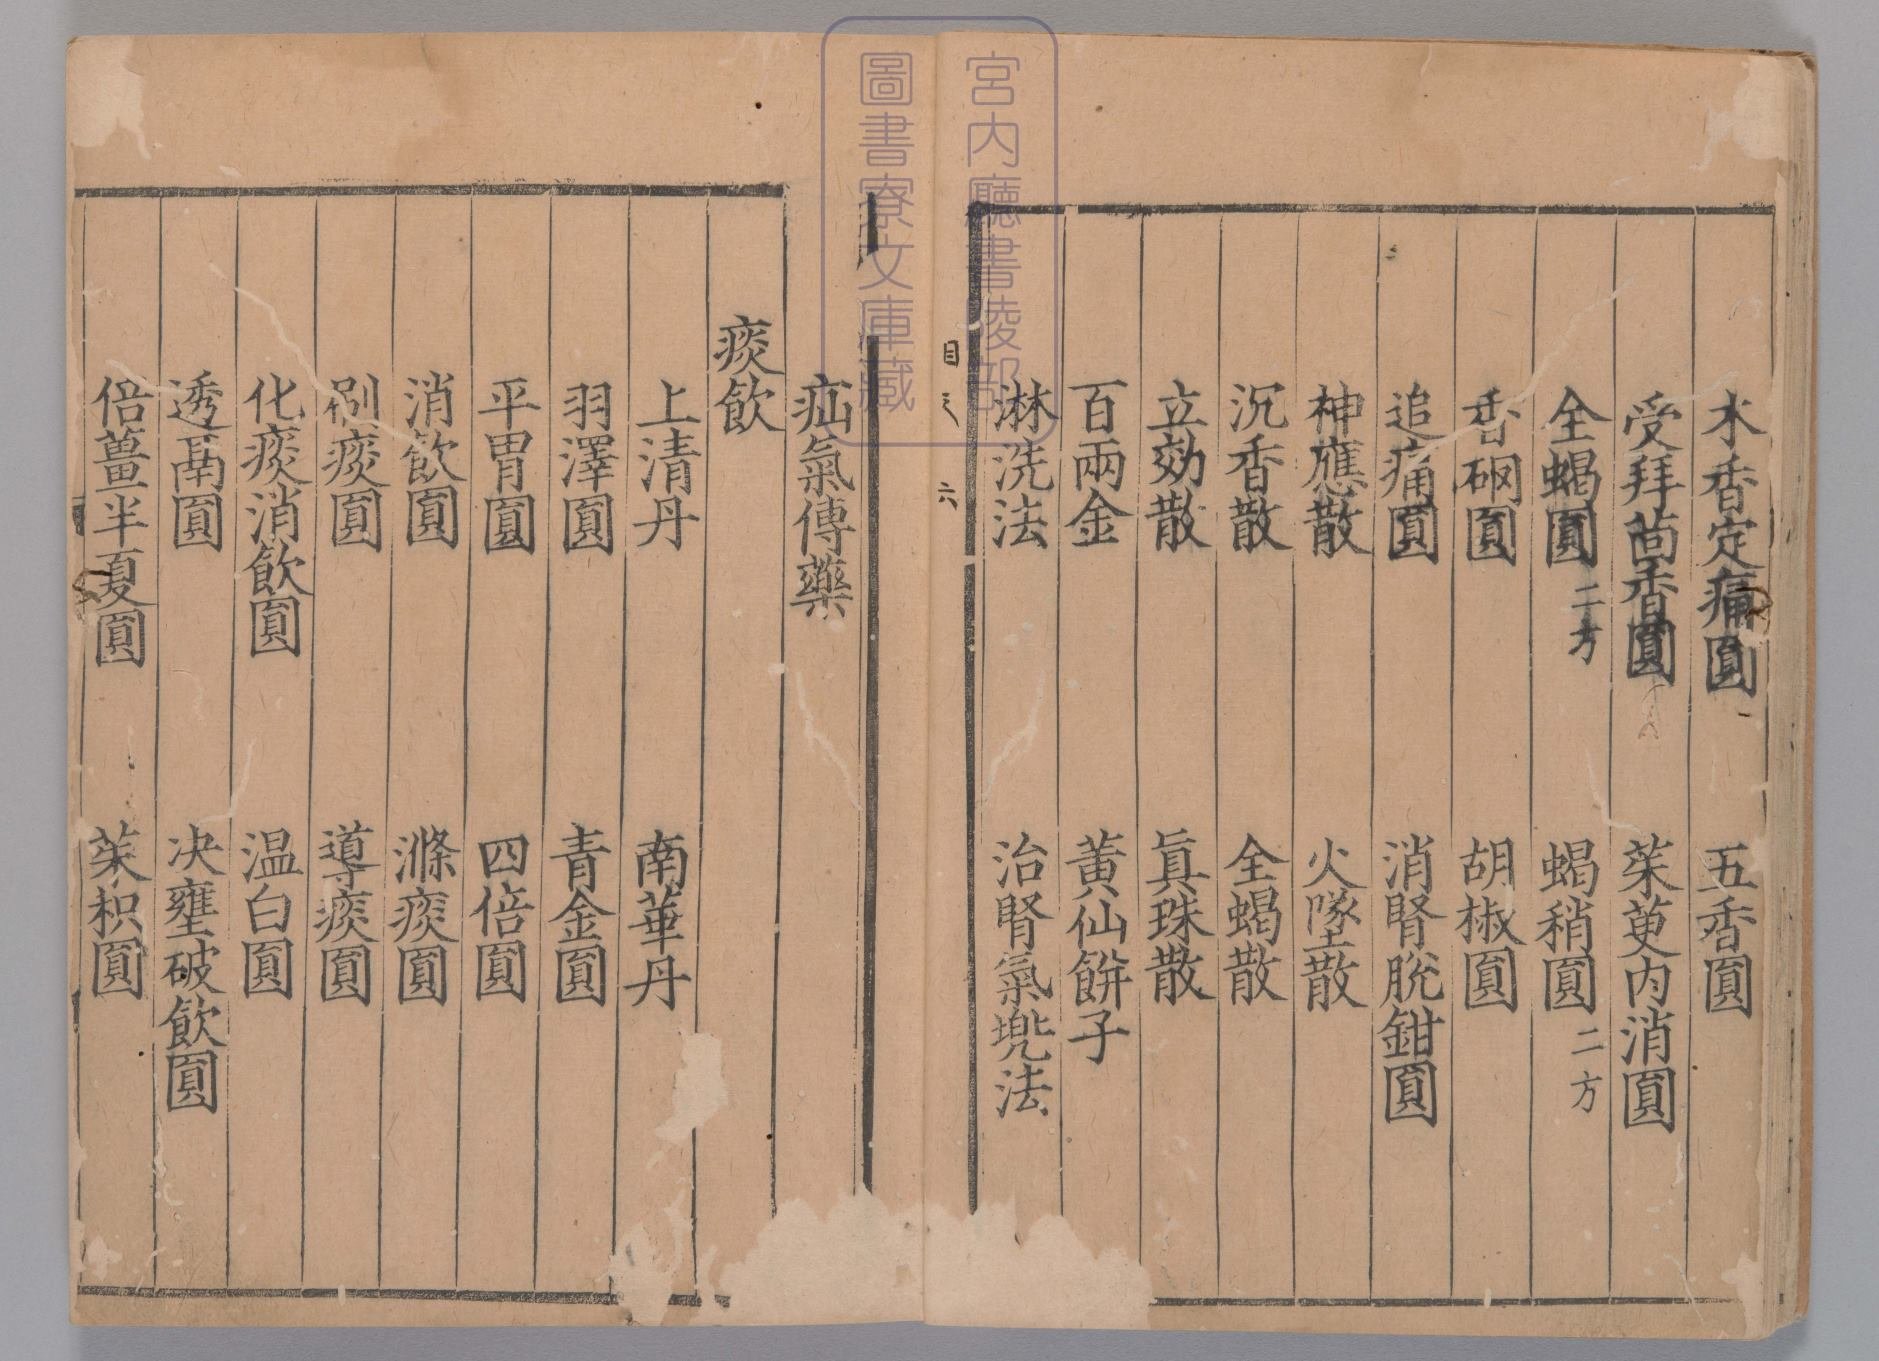 宮内廳書陵部
圖書寮文庫藏
木香定痛圓 五香圓
受拜茴香圓 茱萸内消圓
全蝎圓二方 蝎稍圓二方
香硇圓 胡椒圓
追痛圓 消腎脫鉗圓
神應散 火墜散
沉香散 全蝎散
立効散 眞珠散
百兩金 黄仙餅子
淋洗法 治腎氣兠法
目 六
疝氣傳藥
痰飲
上清丹 南華丹
羽澤圓 青金圓
平胃圓 四倍圓
消飲圓 滌痰圓
剜痰圓 導痰圓
化痰消飲圓 温白圓
透鬲圓 决壅破飲圓
倍薑半夏圓 茱枳圓